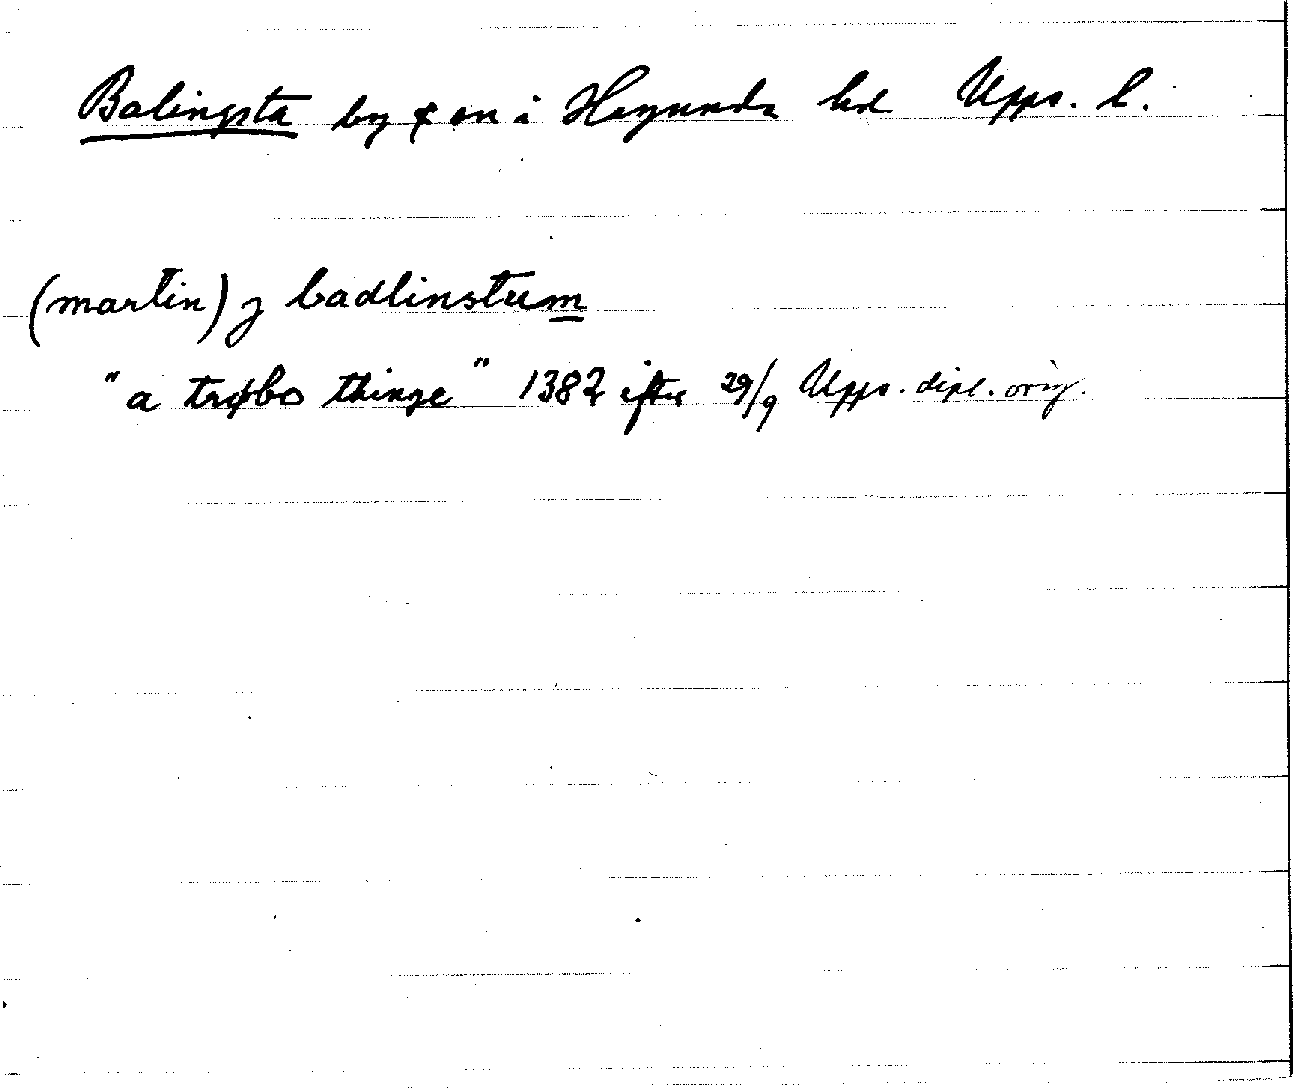 Balingsta by & sn i Hagunda hd Upps. l.
(martin) j badlinstum
"a trøbo thinge" 1382 efter 29/9 Upps. dipl. orig.